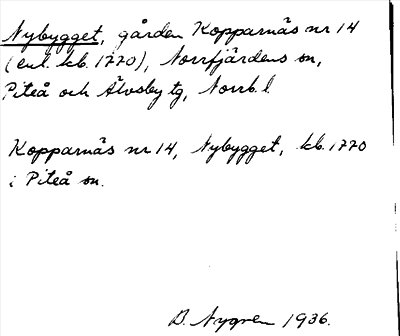 Nybygget, gården Kopparnäs nr 14
(enl. kb. 1770), Norrfjärdens sn,
Piteå och Älvsby tg, Norrb. l
Kopparnäs nr 14, Nybygget, kb. 1770
i Piteå sn.
B. Nygren 1936.